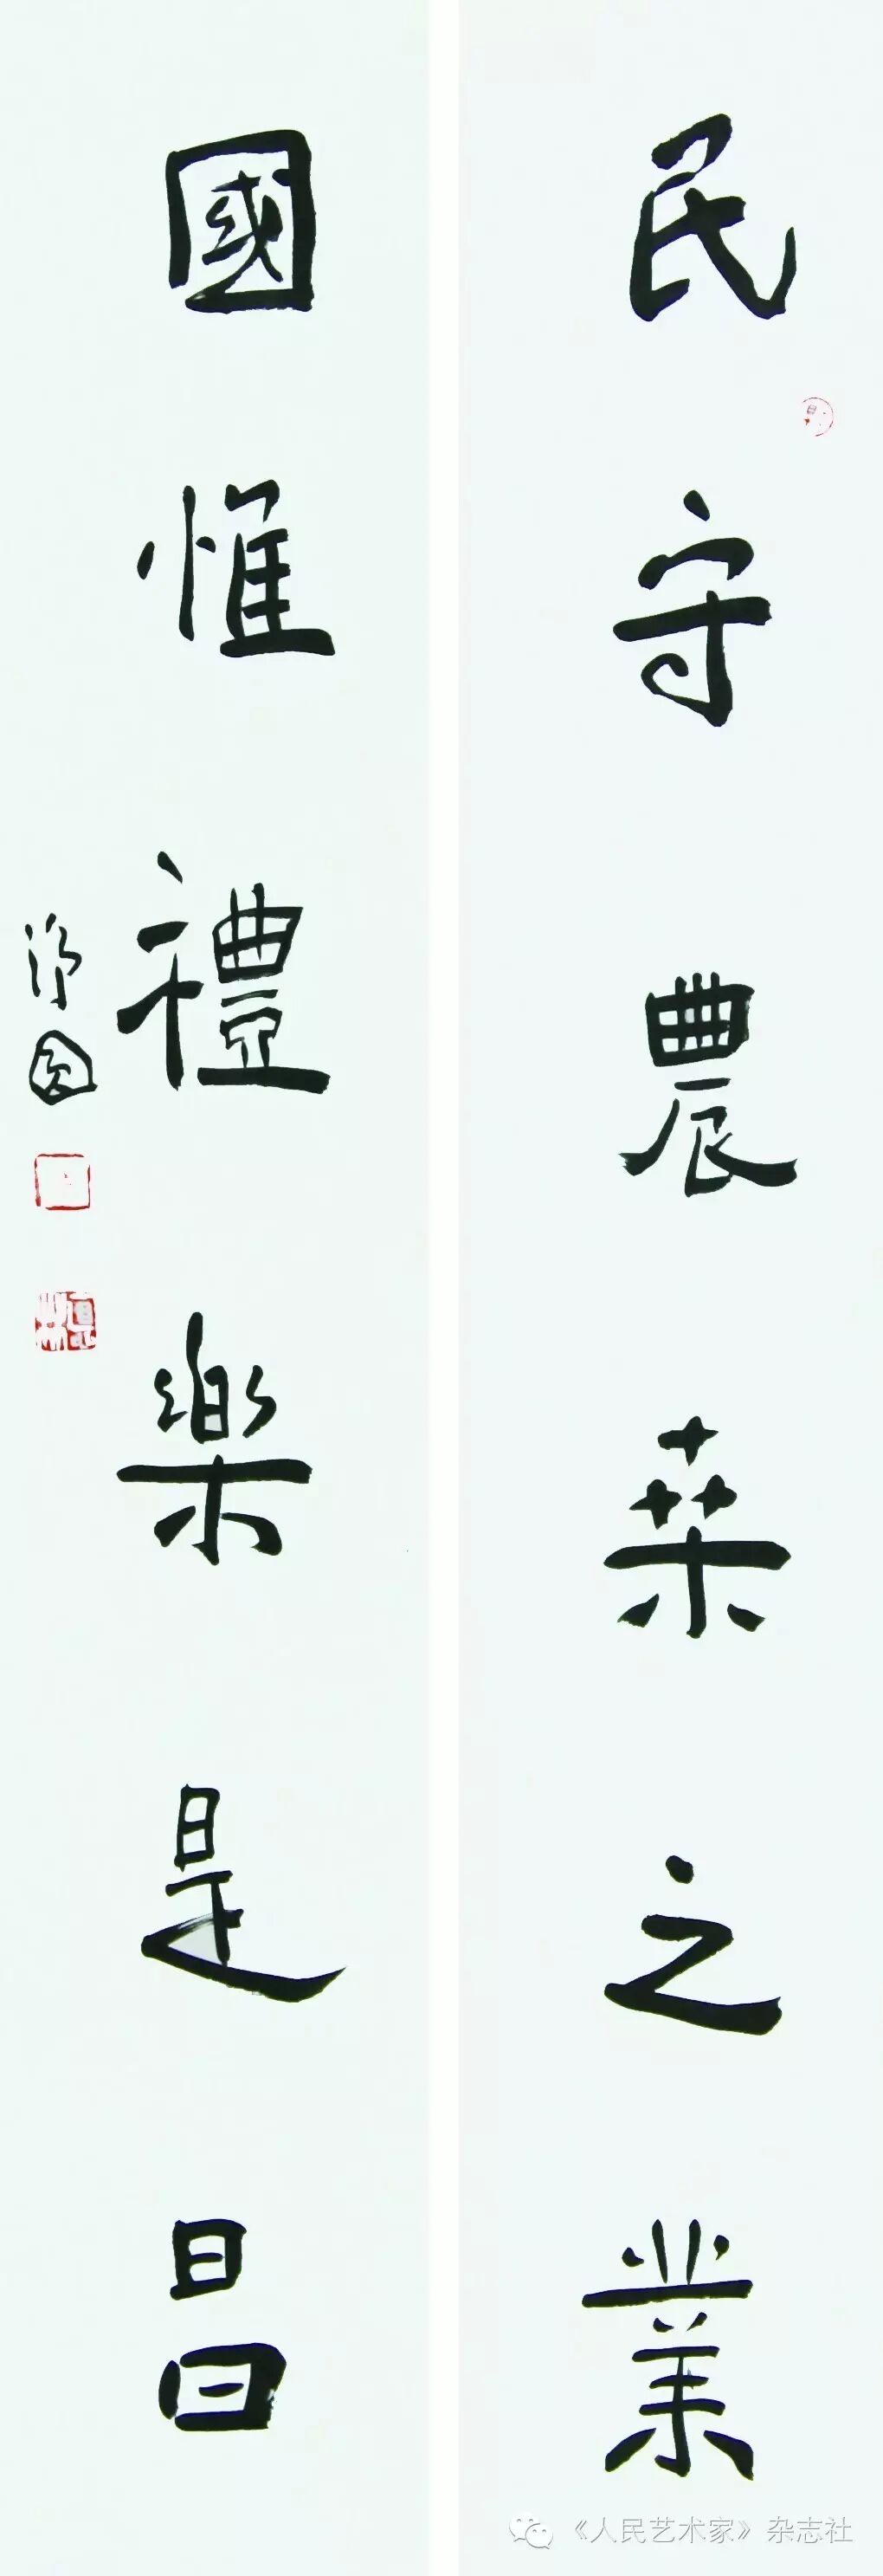 民守農桒之業
國惟禮樂是昌
《人民艺术家》杂志社